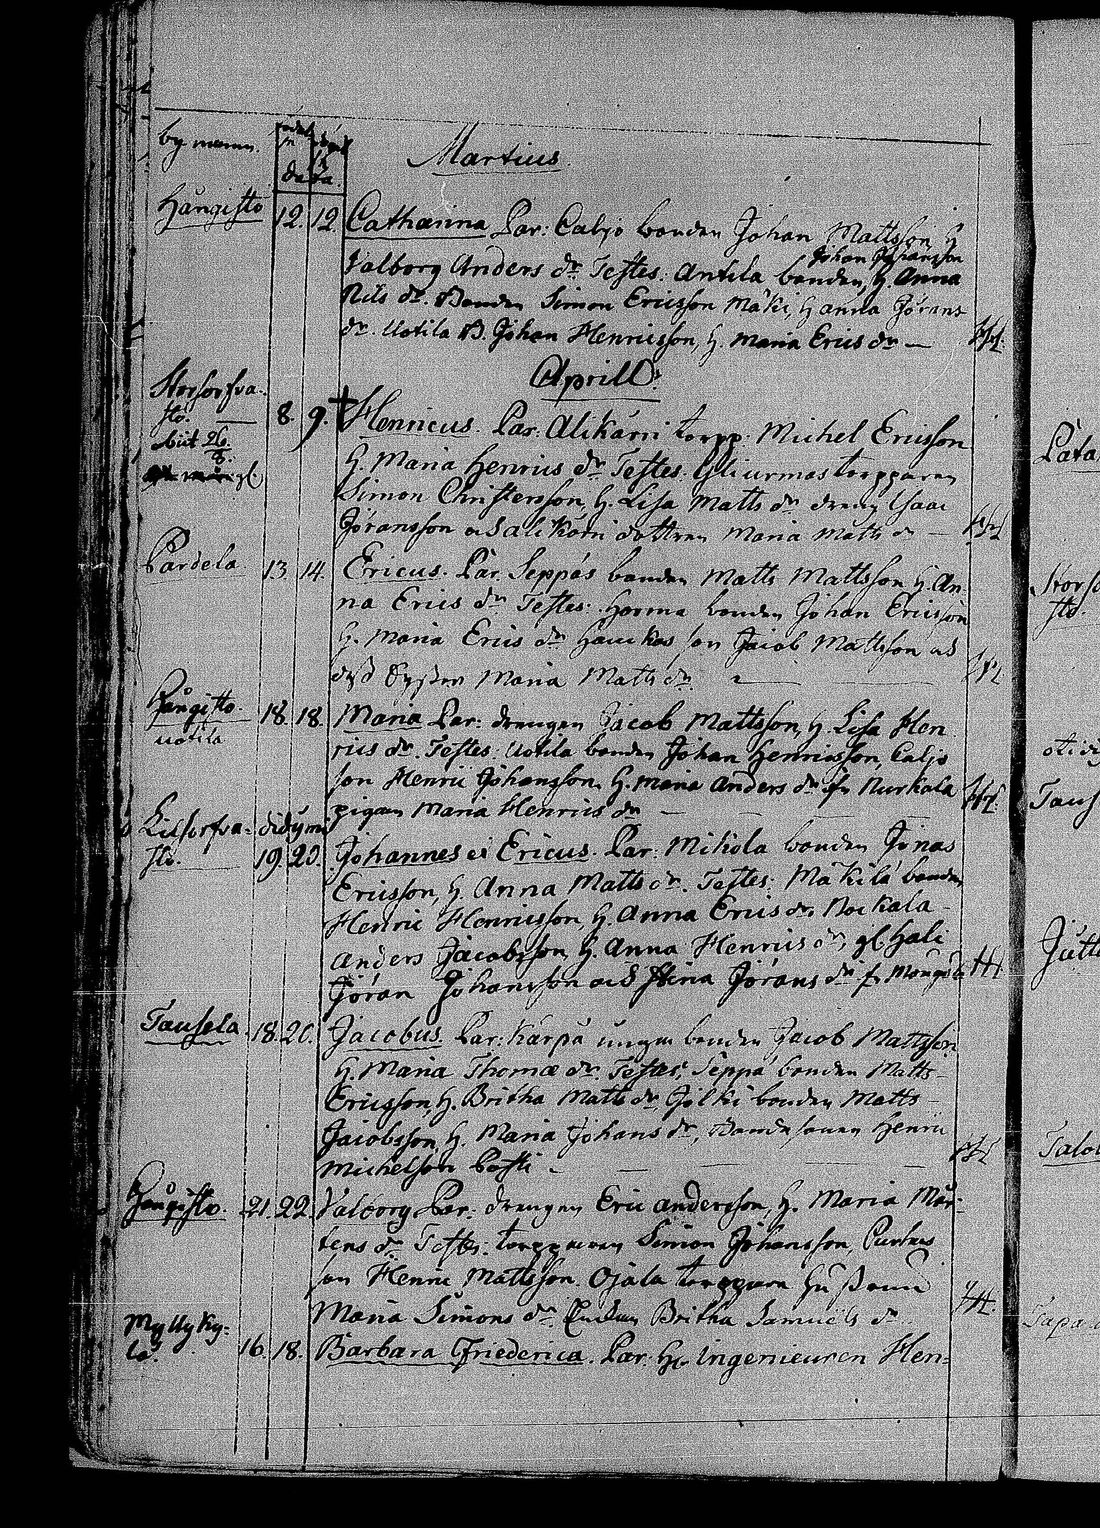 by namn.
Martius.
Hångisto 12. 12. Catharina Par: Caljo bonden Johan Mattsson H
Johan Jöransson
Valborg Anders dr. Testes: Antila bonden, H. Anna
Nils dr. Bonden Simon Ericsson Mäki, H anna Jörans
dr. Uotila B. Johan Henricsson, H. Maria Erics dr
Aprill:
Storsorfva-
sto.
obiit 26/8.
8. 9. † Henricus. Par: Alikärri torpp: Michel Ericsson
H. Maria Henrics dr Testes: torpparen
Simon Christersson, H. Lisa Matts dr dreng Isaac
Jöransson och alikärri dottren Maria Matts dr
Pardela 13. 14. Ericus. Par. Seppäs bonden Matts Mattsson H. An-
na Erics dr Testes: Horma bonden Johan Ericsson
H. Maria Erics dr Haukas son Jacob Mattsson och
dess Syster Maria Matts dr.
Hångisto.
uotila
18. 18. Maria Par: drengen Jacob Mattsson, H. Lisa Hen-
rics dr. Testes: Uotila bonden Johan Henricsson, Caljo
son Henric Johansson, H. Maria Anders dr fr Nurkala
pigan Maria Henrics dr
Lilsorfva-
sto.
didymi
19. 20. Johannes et Ericus. Par: Mikola bonden Jonas
Ericsson, H. Anna Matts dr. Testes: Mäkilä bonden
Henric Henricsson, H. Anna Erics dr, Nockala
Anders Jacobsson, H. Anna Henrics dr, gl. Hali
Jöran Johansson och Stina Jörans dr f
Tausela 18. 20. Jacobus. Par: Kärpä unga bonden Jacob Mattsson
H. Maria Thomæ dr. Testes: Seppä bonden Matts
Ericsson, H. Britha Matts dr, Jölki bonden Matts
Jacobsson, H. Maria Johans dr, Bondesonen Henric
Michelson Posti
Hångisto. 21. 22. Valborg Par: drengen Eric andersson, H. Maria Mår-
tens dr Testes: torpparen Simon Johansson,
son Henric Mattsson. Ojala torppare hustrun
Maria Simons dr Britha Samuels dr
Myllyky-
lä.
16. 18. Barbara Friederica. Par: Hr Ingenieuren Hen-
Jutti